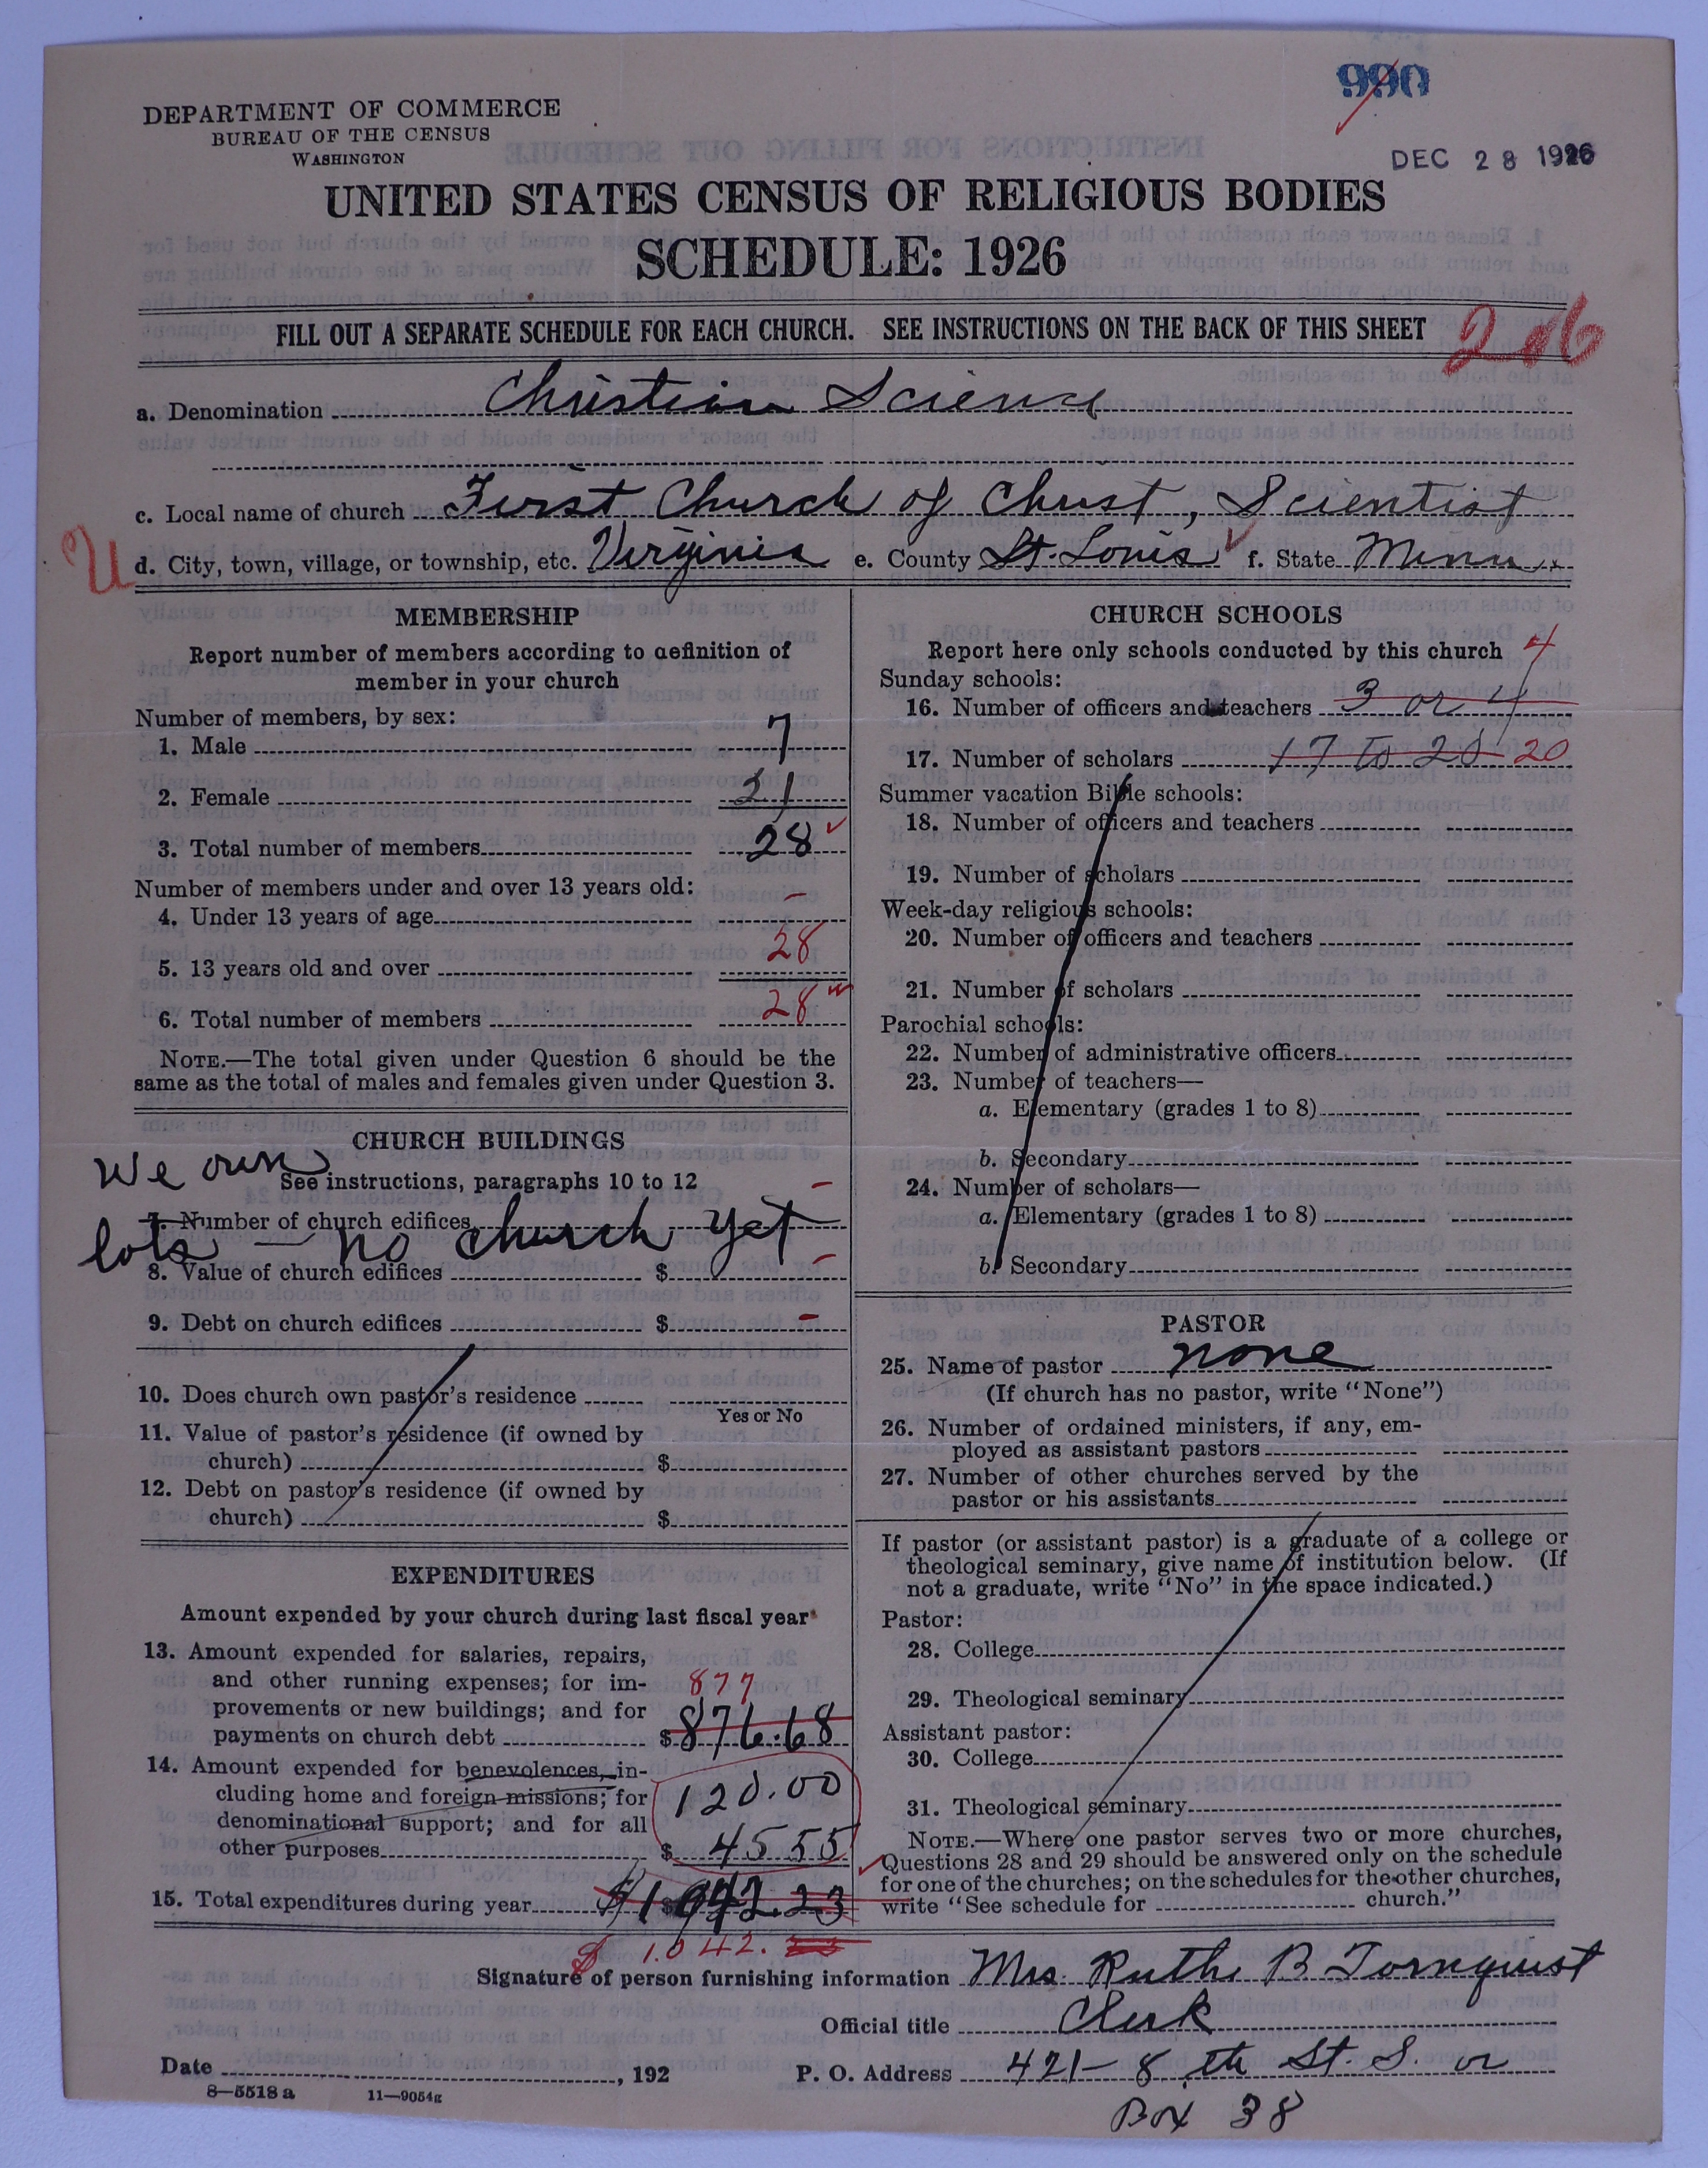 990
DEPARTMENT OF COMMERCE
BUREAU OF THE CENSUS
WASHINGTON
DEC 28 1926
UNITED STATES CENSUS OF RELIGIOUS BODIES
SCHEDULE: 1926
FILL OUT A SEPARATE SCHEDULE FOR EACH CHURCH. SEE INSTRUCTIONS ON THE BACK OF THIS SHEET
a. Denomination Christian Science
c. Local name of church First Church of Christ, Scientist
U d. City, town, village, or township, etc. Virginia e. County St. Louis f. State Minn.
MEMBERSHIP
Report number of members according to definition of
member in your church
Number of members, by sex:
1. Male 7
2. Female 21
3. Total number of members 28
Number of members under and over 13 years old:
4. Under 13 years of age –
5. 13 years old and over 28
6. Total number of members 28
NOTE.—The total given under Question 6 should be the
same as the total of males and females given under Question 3.
CHURCH BUILDINGS
We own
See instructions, paragraphs 10 to 12
7. Number of church edifices –
lots — no church yet
8. Value of church edifices $ –
9. Debt on church edifices $ –
10. Does church own pastor's residence
Yes or No
11. Value of pastor's residence (if owned by
church) $
12. Debt on pastor's residence (if owned by
church) $
EXPENDITURES
Amount expended by your church during last fiscal year
13. Amount expended for salaries, repairs,
and other running expenses; for im-
877
provements or new buildings; and for
payments on church debt $ 876.68
14. Amount expended for benevolences, in-
cluding home and foreign missions; for 120.00
denominational support; and for all
other purposes $ 45 55
15. Total expenditures during year $1042.23
$ 1.042.23
CHURCH SCHOOLS
Report here only schools conducted by this church 4
Sunday schools:
16. Number of officers and teachers 3 or 4
17. Number of scholars 17 to 20 20
Summer vacation Bible schools:
18. Number of officers and teachers
19. Number of scholars
Week-day religious schools:
20. Number of officers and teachers
21. Number of scholars
Parochial schools:
22. Number of administrative officers
23. Number of teachers—
a. Elementary (grades 1 to 8)
b. Secondary
24. Number of scholars—
a. Elementary (grades 1 to 8)
b. Secondary
PASTOR
25. Name of pastor none
(If church has no pastor, write "None")
26. Number of ordained ministers, if any, em-
ployed as assistant pastors
27. Number of other churches served by the
pastor or his assistants
If pastor (or assistant pastor) is a graduate of a college or
theological seminary, give name of institution below. (If
not a graduate, write "No" in the space indicated.)
Pastor:
28. College
29. Theological seminary
Assistant pastor:
30. College
31. Theological seminary
NOTE.—Where one pastor serves two or more churches,
Questions 28 and 29 should be answered only on the schedule
for one of the churches; on the schedules for the other churches,
write "See schedule for church."
Signature of person furnishing information Mrs. Ruth B Tornquist
Official title Clerk
Date , 192 P. O. Address 421–8th St. S. or
8—5518 a 11—9054g
Box 38